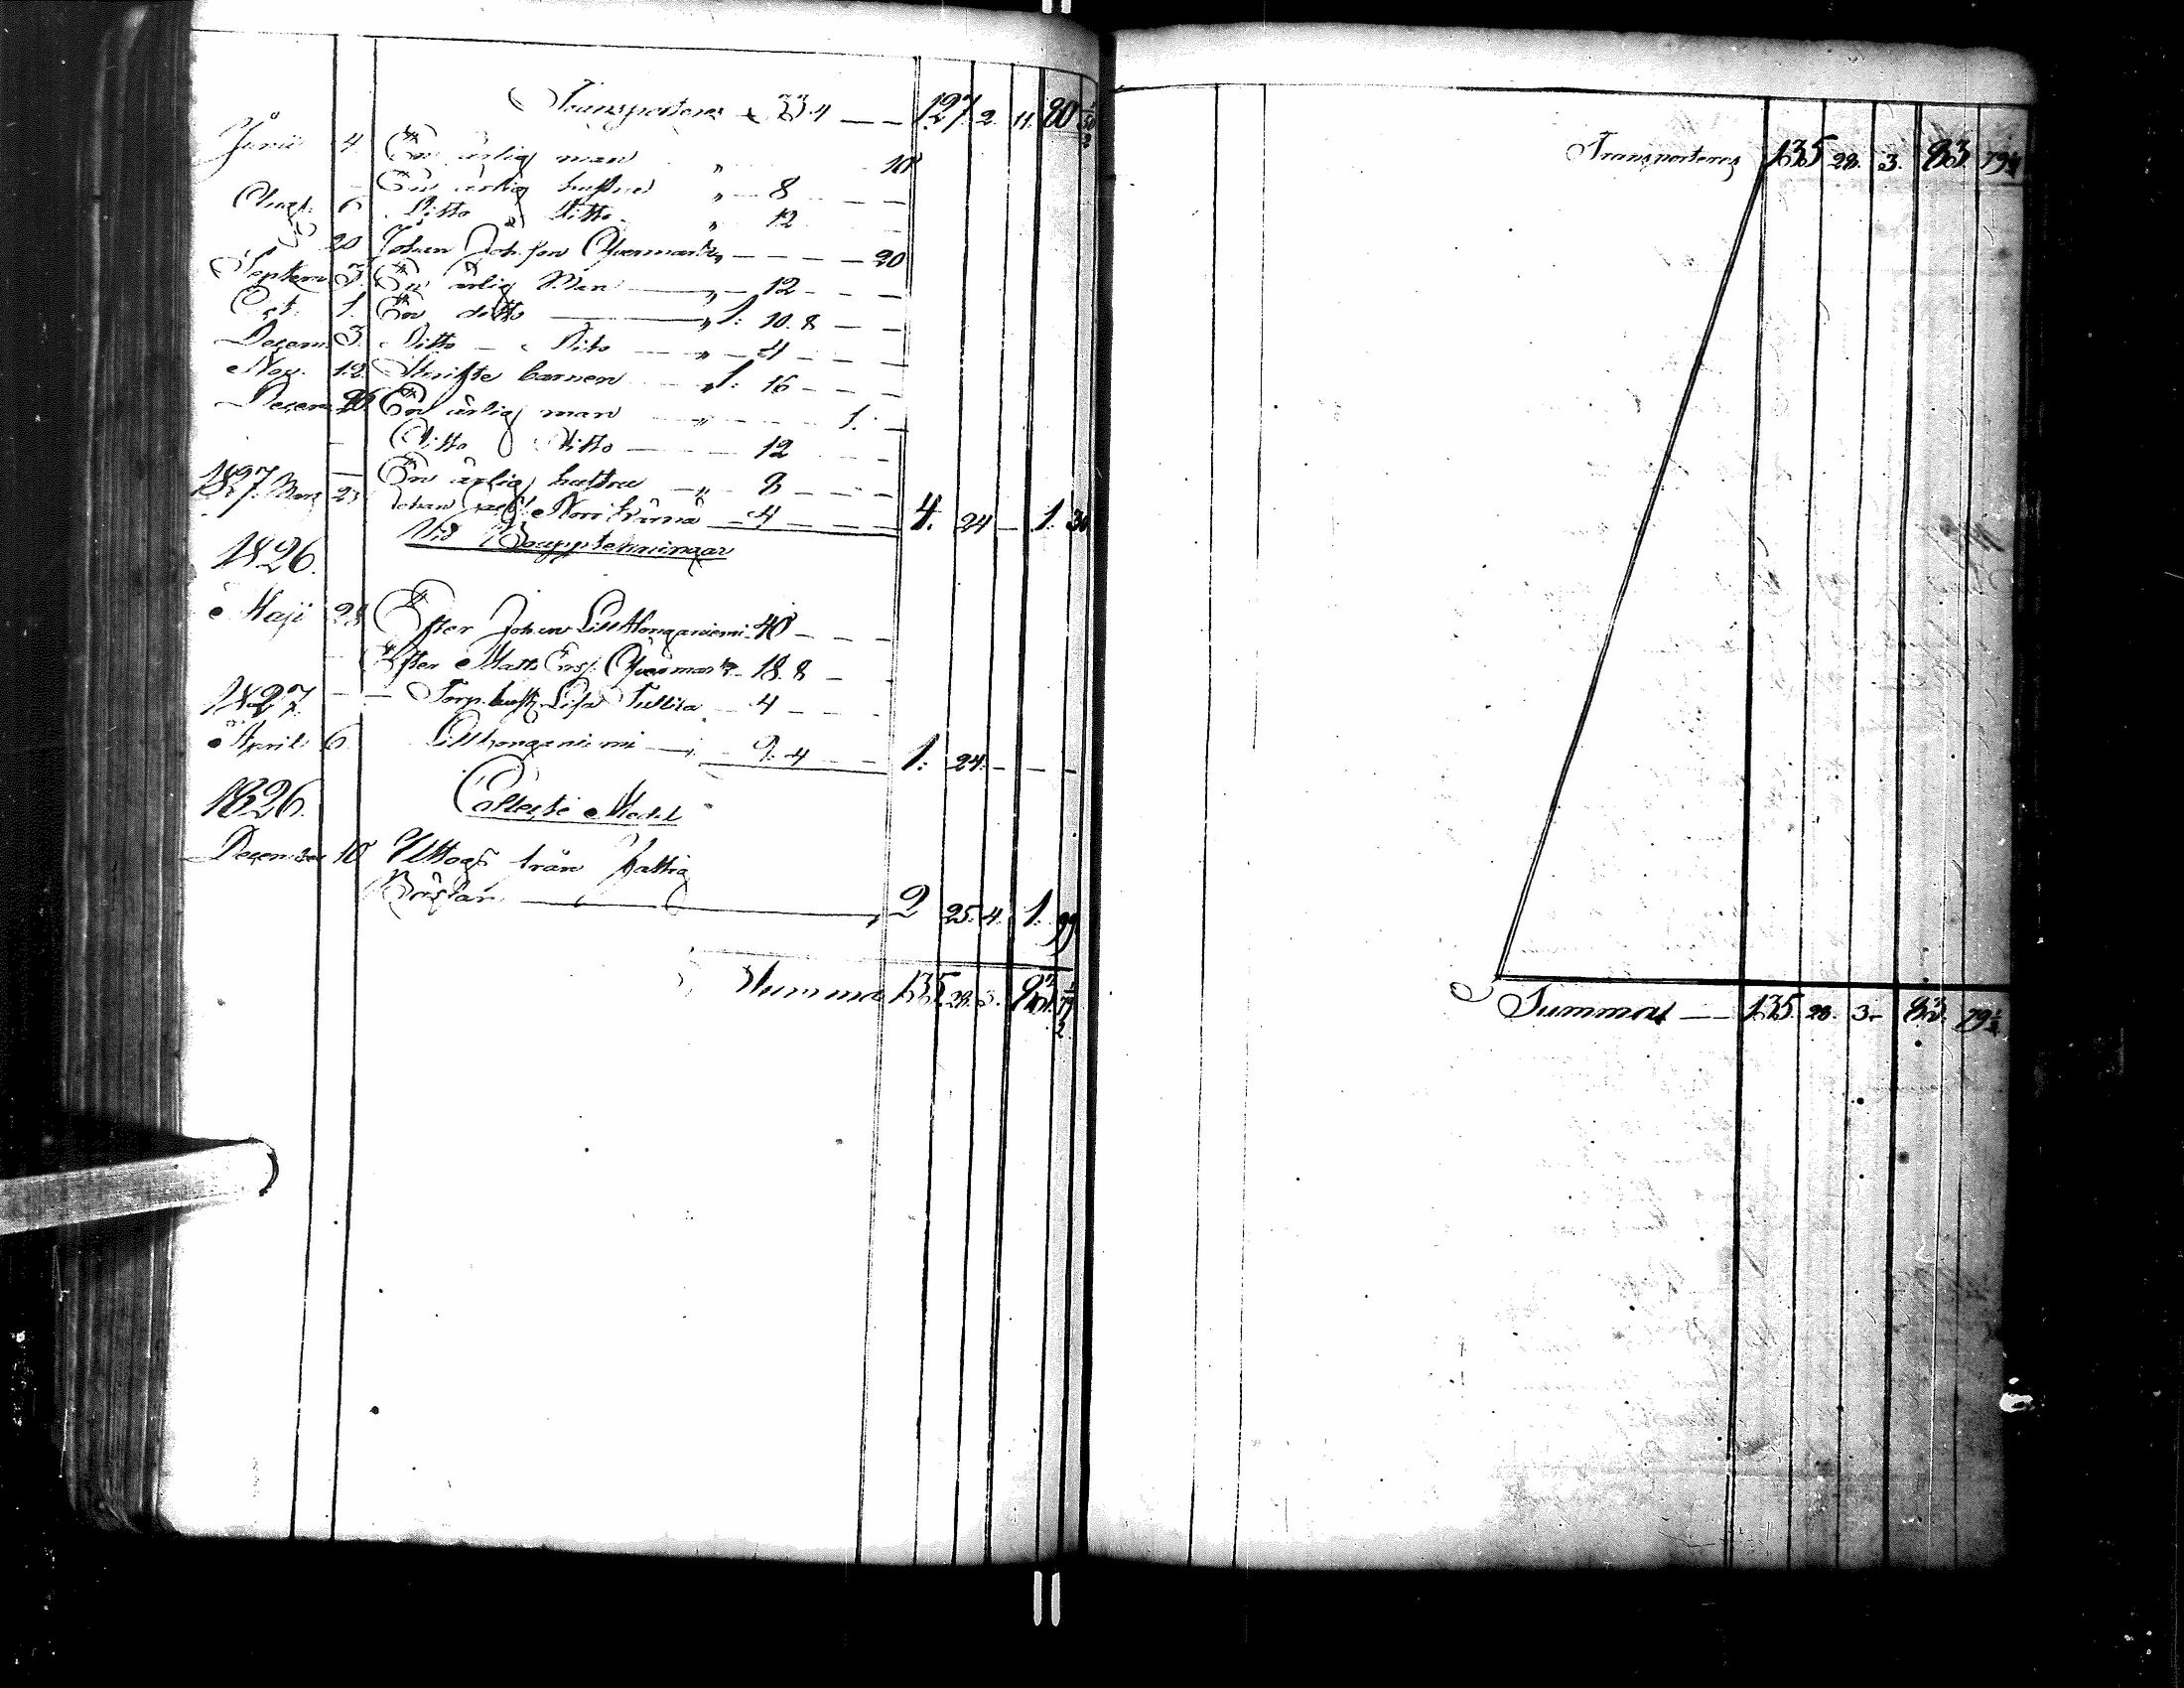 Transporteras 33 4 — — 127 2. 11. 80
Junii 4. En ärlig man „ 10
— En ärlig hustru „ — 8 — —
Augt. 6 Ditto Ditto „ 12
20 Johan Joh. son — — — — 20
Septem 3. En ärlig Man — „ — 12 — — —
Oct. 1. En ditto — „ 1: 10. 8 — —
Decem. 3. Ditto — Dito — „ — 4 — — —
Nov. 12. Skrifte barnen — „ 1: 16 — — —
Decem En ärlig man — „ — 1. —
— Ditto Ditto — — — 12 — — —
— En ärlig hustru — „ — 8 — — —
1827. Mars 23 Johan — 4 — — — 4. 24 — 1. 30
Vid Bouppteckningar
1826.
Maji 28 Efter Johan Lillkonganiemi 40 — — —
— Efter Matts Ersf. 18. 8 — —
1827. — — Torp. hust. Lisa — 4 — — —
April 6. Lillkonganiemi — 9. 4 — — 1: 24. — — —
1826. Collecte Medel
December 10 Uttogs från fattig
Bössan — 2 25. 4. 1. 99
Summa 135. 28. 3. 83. 79 1/2
Transporteras 135 28. 3. 83. 79 1/2
Summa — 135. 28. 3. 83. 79 1/2